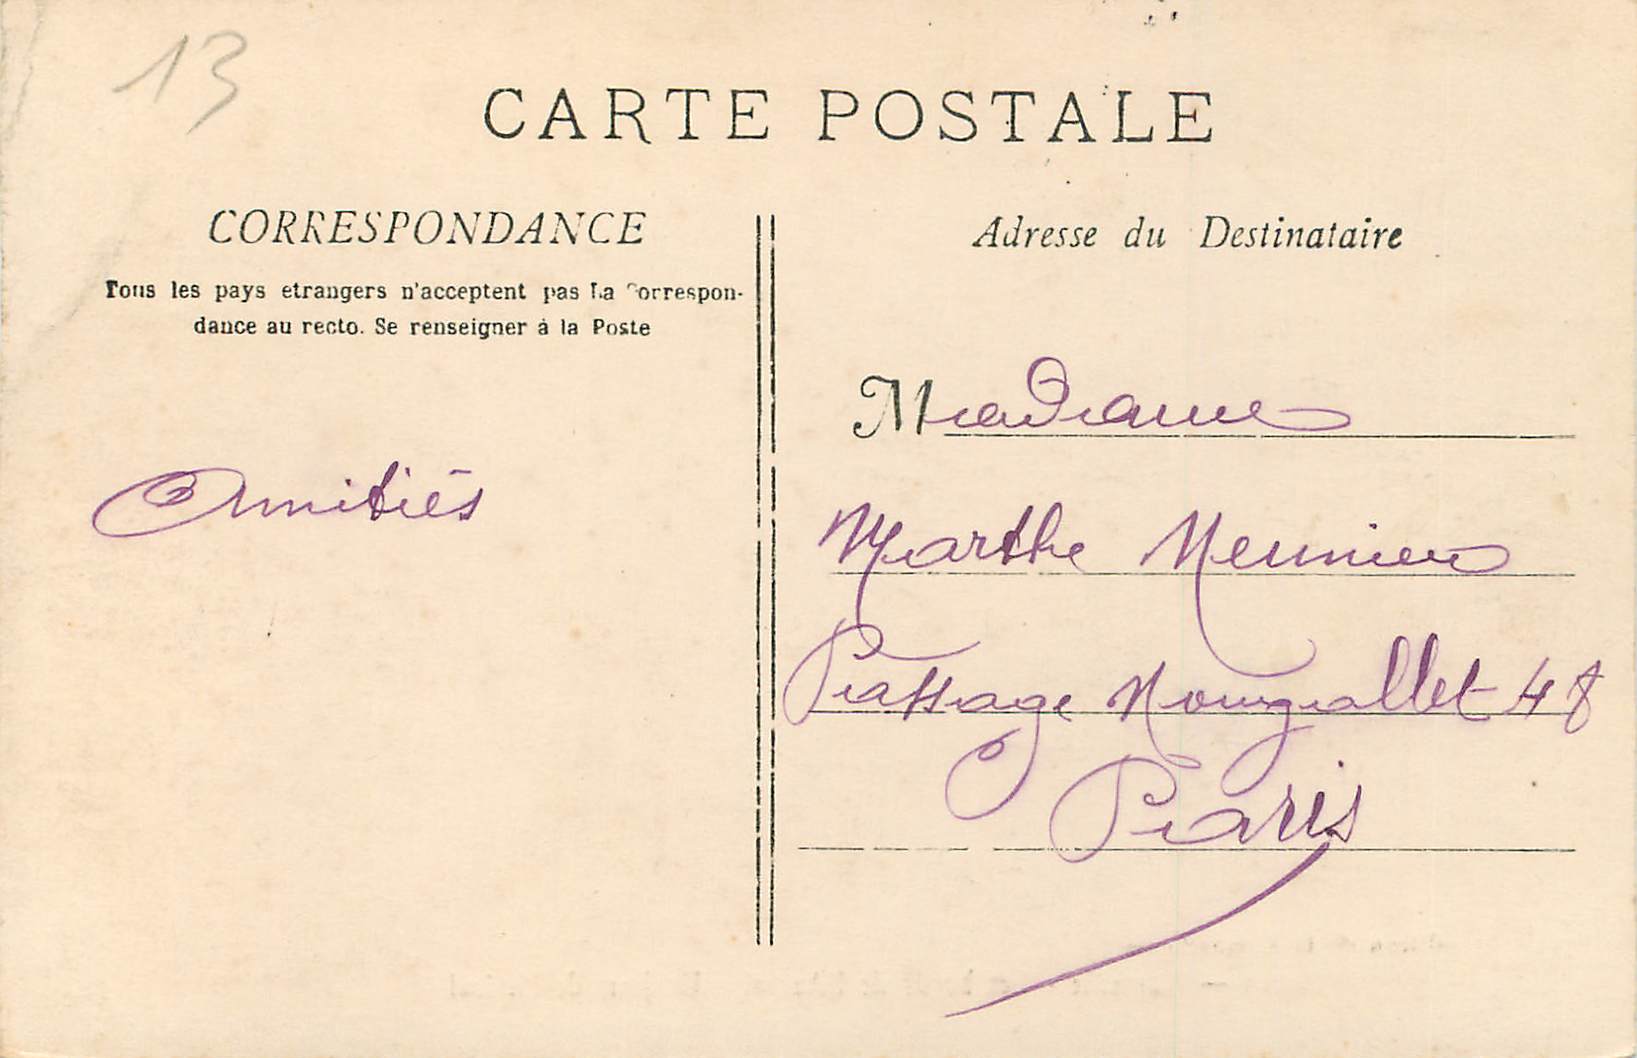 13
CARTE POSTALE
CORRESPONDANCE
Tous les pays etrangers n'acceptent pas La Correspon-
dance au recto. Se renseigner à la Poste
Amitiés
Adresse du Destinataire
Madame
Marthe Meunier
Passage 48
Paris